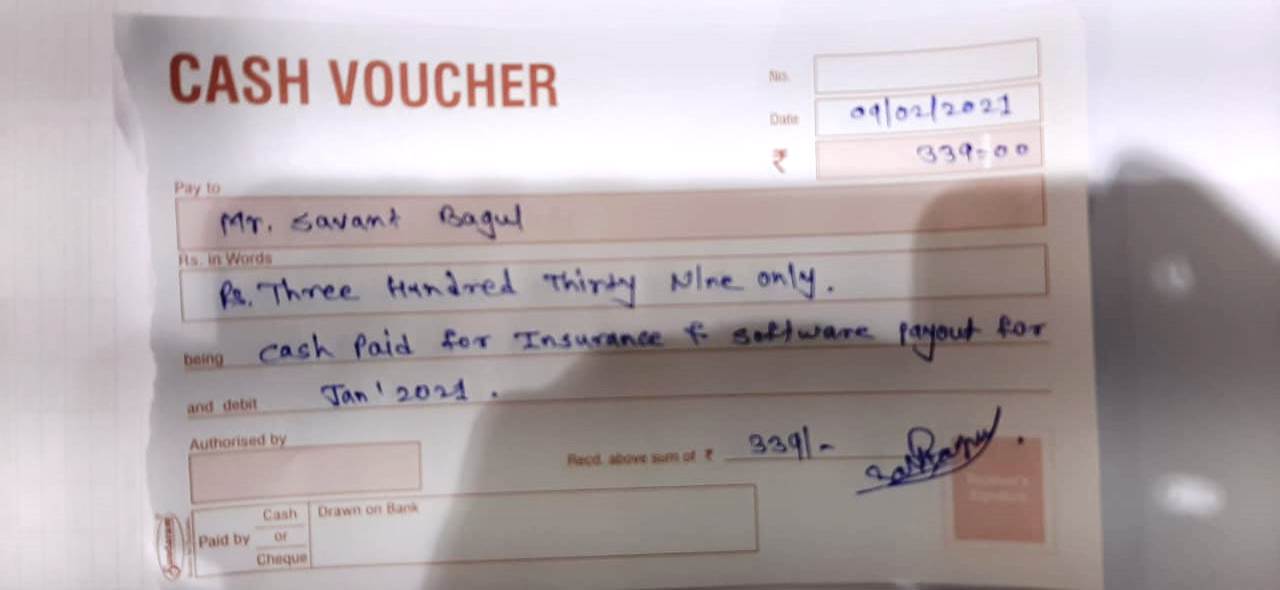 CASH VOUCHER
No.
Date 09/02/2021
₹ 339=00
Pay to
Mr. Savant Bagul
Rs. in Words
Rs. Three Hundred Thirty Nine only.
being cash paid for Insurance & software payout for
and debit Jan' 2021.
Authorised by
Recd. above sum of ₹ 339/-
Receiver's
Signature
Paid by Cash or Cheque
Drawn on Bank